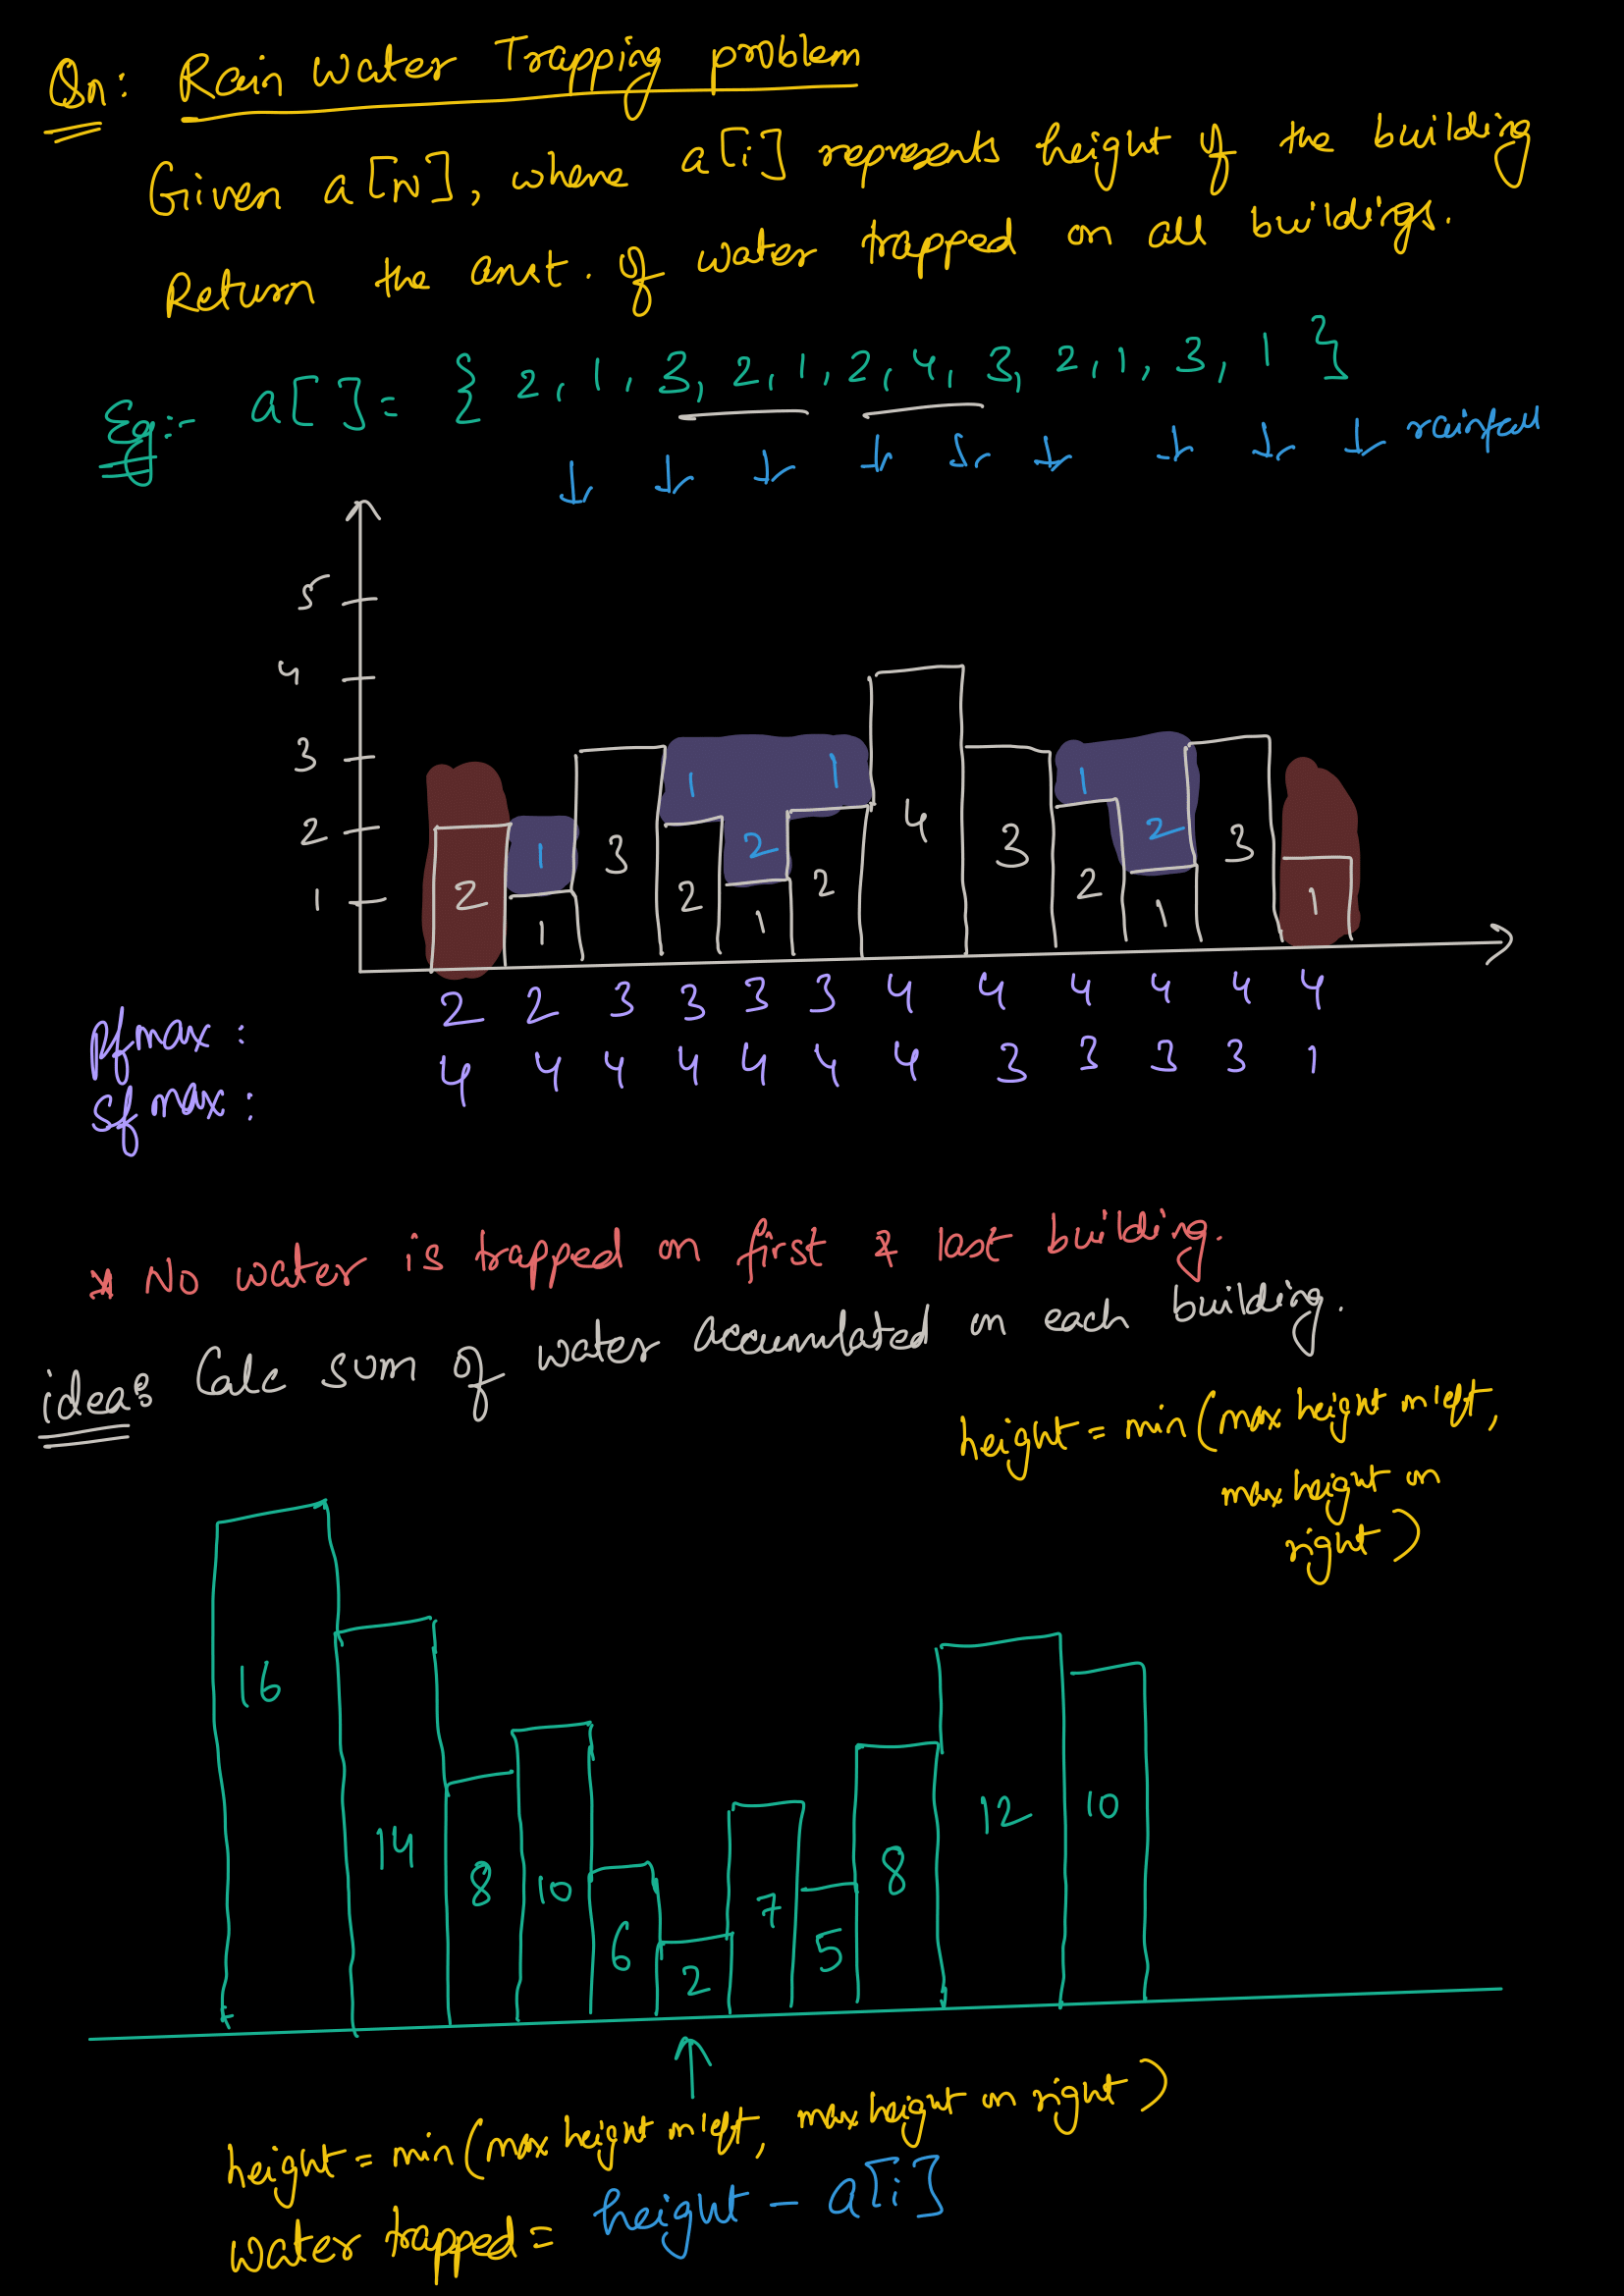 Qn: Rain Water Trapping problem
Given a[N], where a[i] represents height of the building
Return the amt. of water trapped on all buildings.
Eg:- a[]= { 2, 1, 3, 2, 1, 2, 4, 3, 2, 1, 3, 1 }
rainfall
5
4
3
2
1
1 1 1
1 2 2
2 1 3 2 1 2 4 3 2 1 3 1
pfmax: 2 2 3 3 3 3 4 4 4 4 4 4
sfmax: 4 4 4 4 4 4 4 3 3 3 3 1
* No water is trapped on first & last building.
idea: Calc sum of water accumulated on each building.
height = min(max height on left,
max height on
right)
16 14 8 10 6 2 7 5 8 12 10
height = min(max height on left, max height on right)
water trapped = height - a[i]